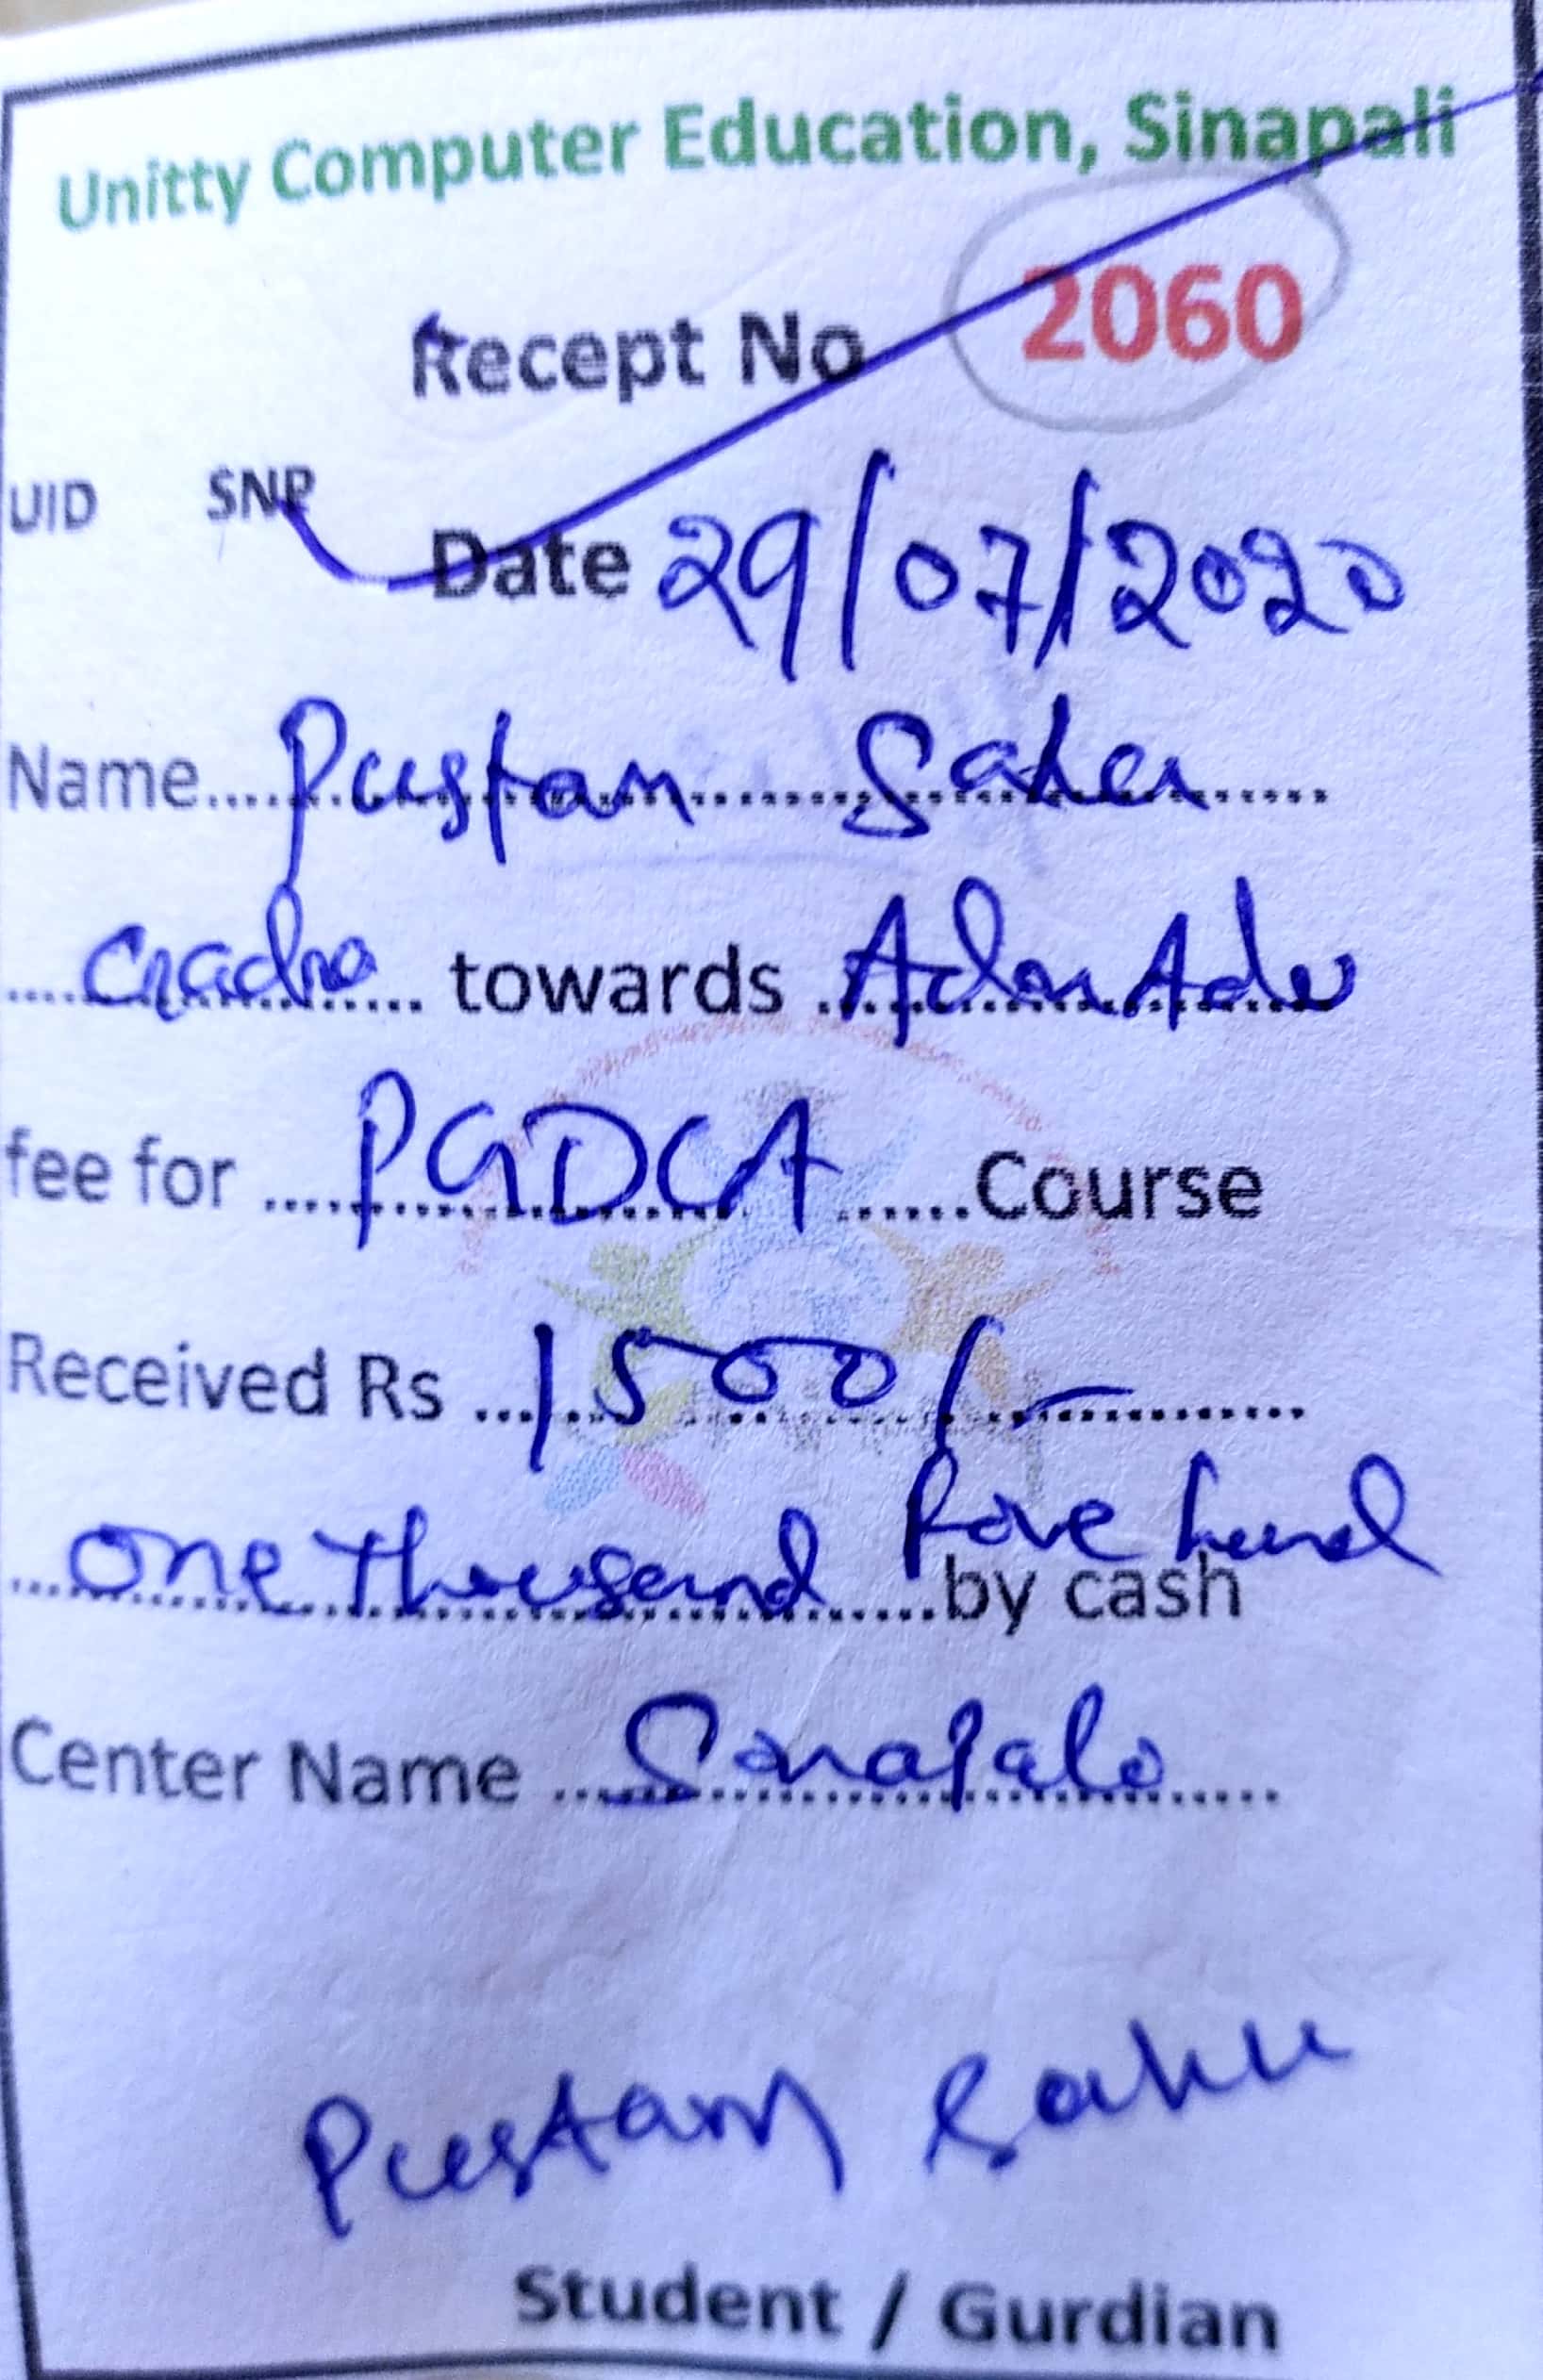 Unitty Computer Education, Sinapali
Recept No 2060
UID SNP
Date 29/07/2020
Name.... Pustam Sahu
towards
fee for .... PGDCA ......Course
Received Rs ... 1500/-
one Thousand Five hund
by cash
Center Name ... Sinapali
Pustam Sahu
Student / Gurdian